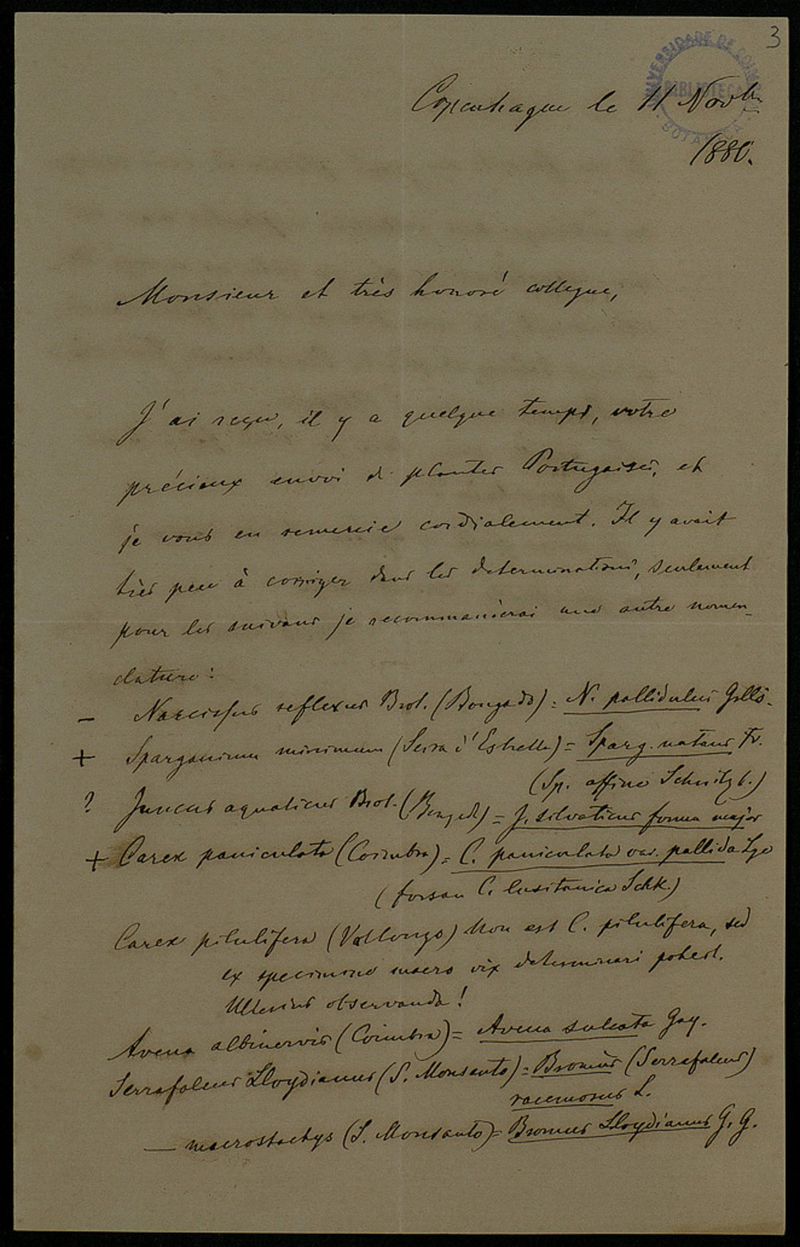 3
UNIVERSIDADE DE COIMBRA
BIBLIOTECA
BOTANICA
Copenhague le 11 Novbr
1880.
Monsieur et très honoré collegue,
J'ai reçu, il y a quelque temps, votre
précieux envoi de plantes Portugaises, et
je vous en remercie cordialement. Il y avait
très peu à corriger dans les determinations, seulement
pour les suivans je recommanderai une autre nomen-
clature:
– Narcissus reflexus Brot. (Bougado) = N. pallidulus Grlls.
+ Sparganium minimum (Serra d'Estrella) = Sparg. natans Fr.
(Sp. affine Schnitzl.)
? Juncus aquaticus Brot. () = J. silvaticus forma major
+ Carex paniculata (Coimbra) = C. paniculata var. pallida Lge
(forsan C. lusitanica Schk.)
Carex pilulifera (Vallongo) Non est C. pilulifera, sed
ex specimine macro vix determinari potest.
Ulterius observanda!
Avena albinervis (Coimbra) = Avena sulcata Gay.
Serrafalcus Lloydianus (S. Monsanto) = Bromus (Serrafalcus)
racemosus L.
— macrostachys (S. Monsanto) = Bromus Lloydianus G. G.